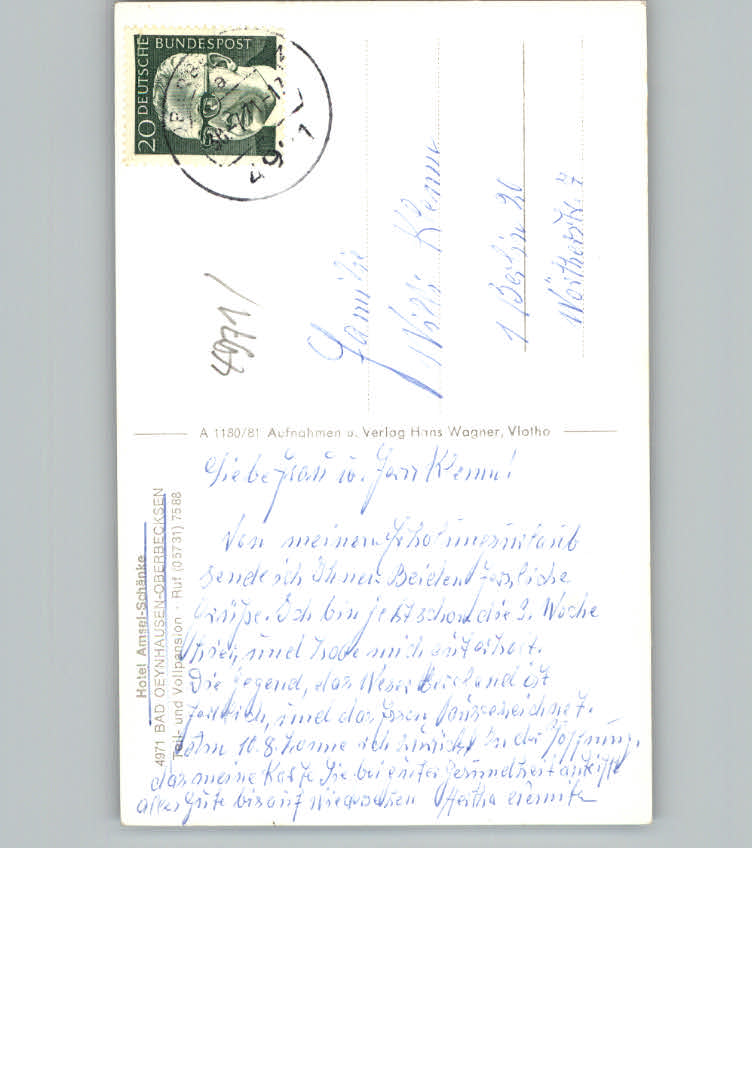 DEUTSCHE BUNDESPOST
20
4971
Familie
Willi Klemm
1 Berlin 20
Wörtherstr. 7
A 1180/81 Aufnahmen u. Verlag Hans Wagner, Vlotho
Hotel Amsel-Schänke
4971 BAD OEYNHAUSEN-OBERBECKSEN
Teil- und Vollpension · Ruf (05731) 7588
Liebe Frau u. Herr Klemm!
Von meinem Erholungsurlaub
sende ich Ihnen Beiden herzliche
Grüße. Ich bin jetzt schon die 2. Woche
hier, und habe mich gut erholt.
Die Gegend, das Weser Bergland ist
herrlich, und das Essen ausgezeichnet.
Am 10.8. komme ich zurück. In der Hoffnung,
das meine Karte Sie bei guter Gesundheit antrifft
alles Gute bis auf Wiedersehen Hertha